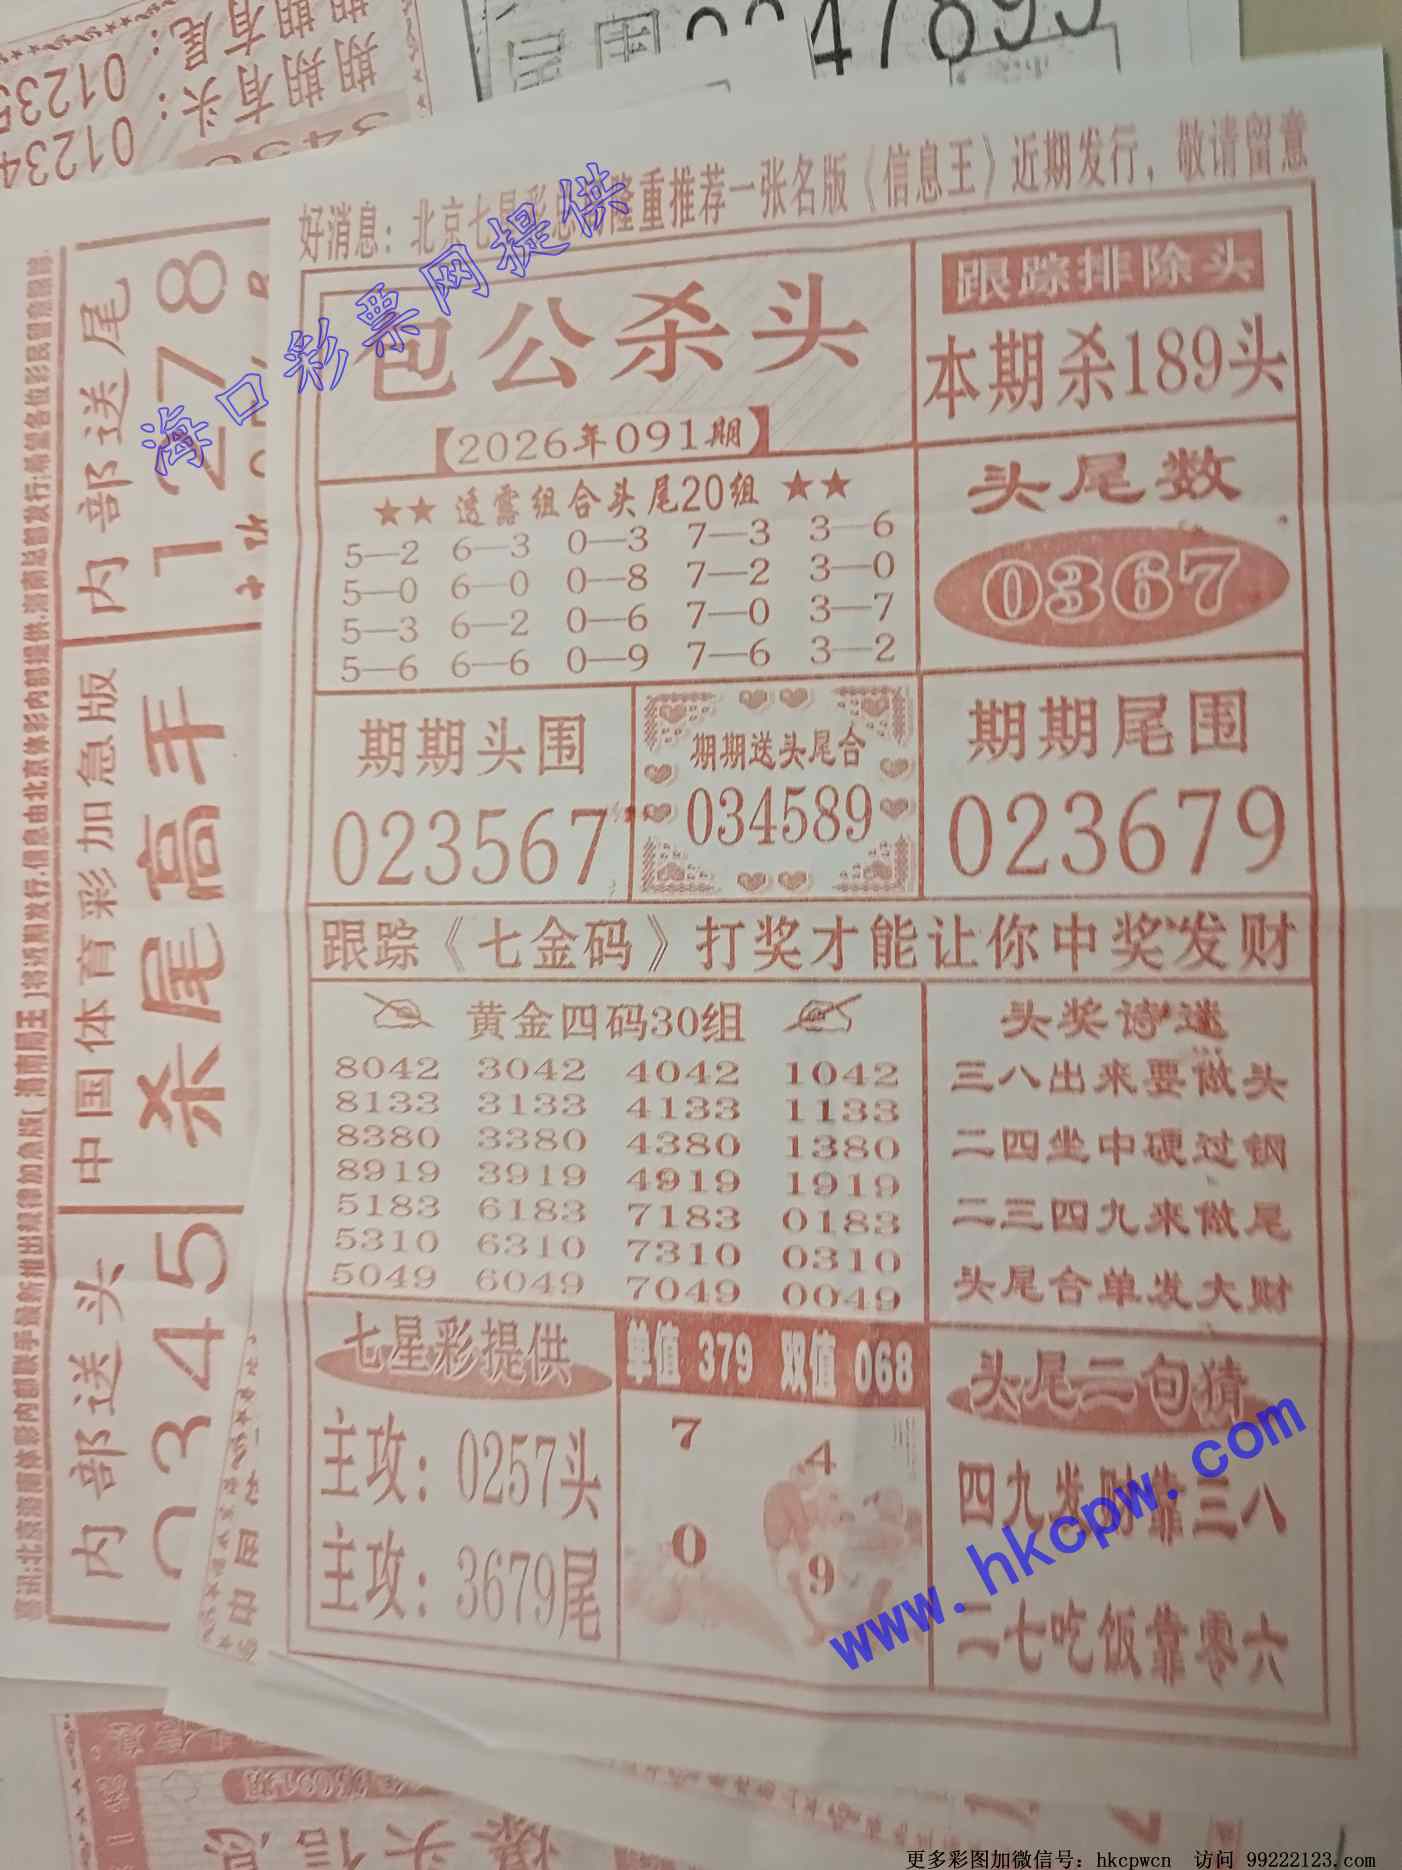 好消息：北京七星彩总部隆重推荐一张名版《信息王》近期发行，敬请留意
包公杀头
【2026年091期】
跟踪排除头
本期杀189头
★★ 透露组合头尾20组 ★★
5—2 6—3 0—3 7—3 3—6
5—0 6—0 0—8 7—2 3—0
5—3 6—2 0—6 7—0 3—7
5—6 6—6 0—9 7—6 3—2
头尾数
0367
期期头围
023567
期期送头尾合
034589
期期尾围
023679
跟踪《七金码》打奖才能让你中奖发财
黄金四码30组
8042 3042 4042 1042
8133 3133 4133 1133
8380 3380 4380 1380
8919 3919 4919 1919
5183 6183 7183 0183
5310 6310 7310 0310
5049 6049 7049 0049
头奖诗迷
三八出来要做头
二四坐中硬过钢
二三四九来做尾
头尾合单发大财
七星彩提供
主攻：0257头
主攻：3679尾
单值 379 双值 068
7 4
0 9
头尾二句猜
四九发财靠三八
二七吃饭靠零六
内部送尾
1278
中国体育彩加急版
杀尾高手
内部送头
0345
期期有尾：01235
期期有头：01234
海口彩票网提供
www.hkcpw.com
更多彩图加微信号：hkcpwcn 访问 99222123.com